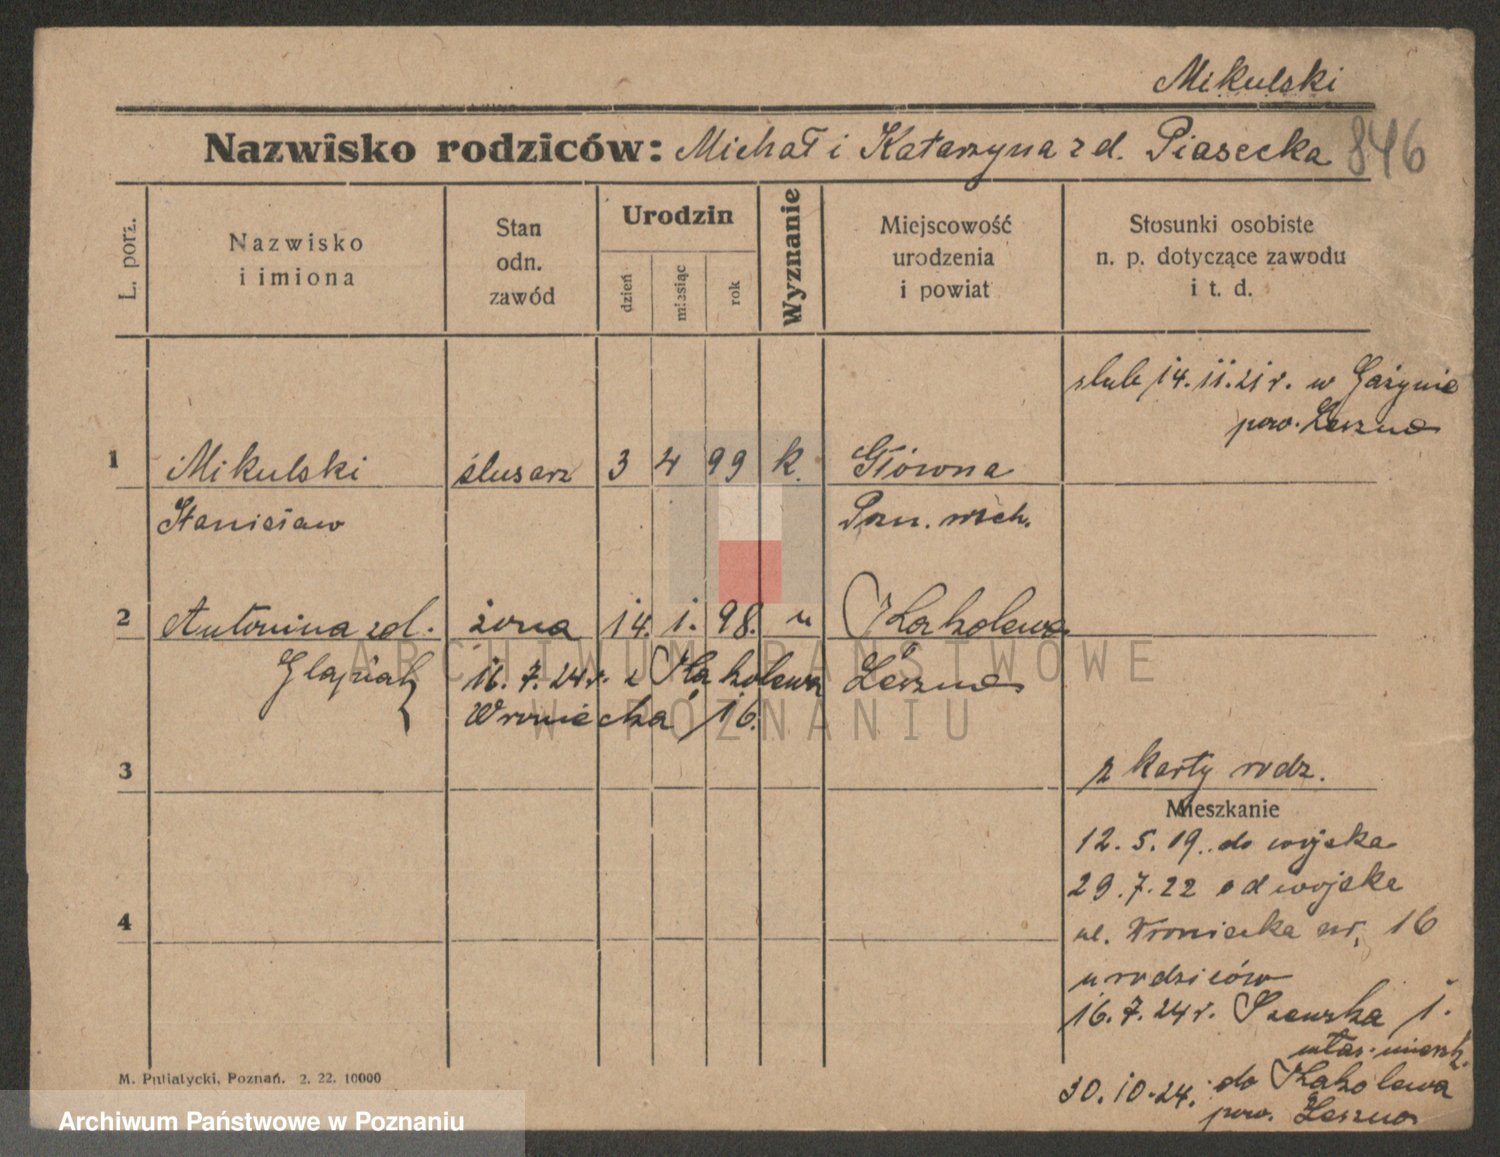 Mikulski
Nazwisko rodziców: Michał i Katarzyna z d. Piasecka 846
L. porz.
Nazwisko i imiona
Stan odn. zawód
Urodzin
dzień
miesiąc
rok
Wyznanie
Miejscowość urodzenia i powiat
Stosunki osobiste n. p. dotyczące zawodu i t. d.
ślub 14. II. 21 r. w
pow. Leszno
1 Mikulski ślusarz 3 4 99 k. Główna
Stanisław Pozn. wsch.
2 Antonina z d. żona 14. 1. 98. " Kąkolewo
16. 7. 24 r. z Kąkolewa Leszno
Wroniecka 16.
3 z karty rodz.
Mieszkanie
12. 5. 19. do wojska
29. 7. 22 od wojska
4 ul. Wroniecka nr. 16
u rodziców
16. 7. 24 r. Szewska 1.
własn. mieszk.
30. 10. 24. do Kąkolewa
pow. Leszno
M. Putiatycki, Poznań. 2. 22. 10000
ARCHIWUM PAŃSTWOWE
W POZNANIU
Archiwum Państwowe w Poznaniu